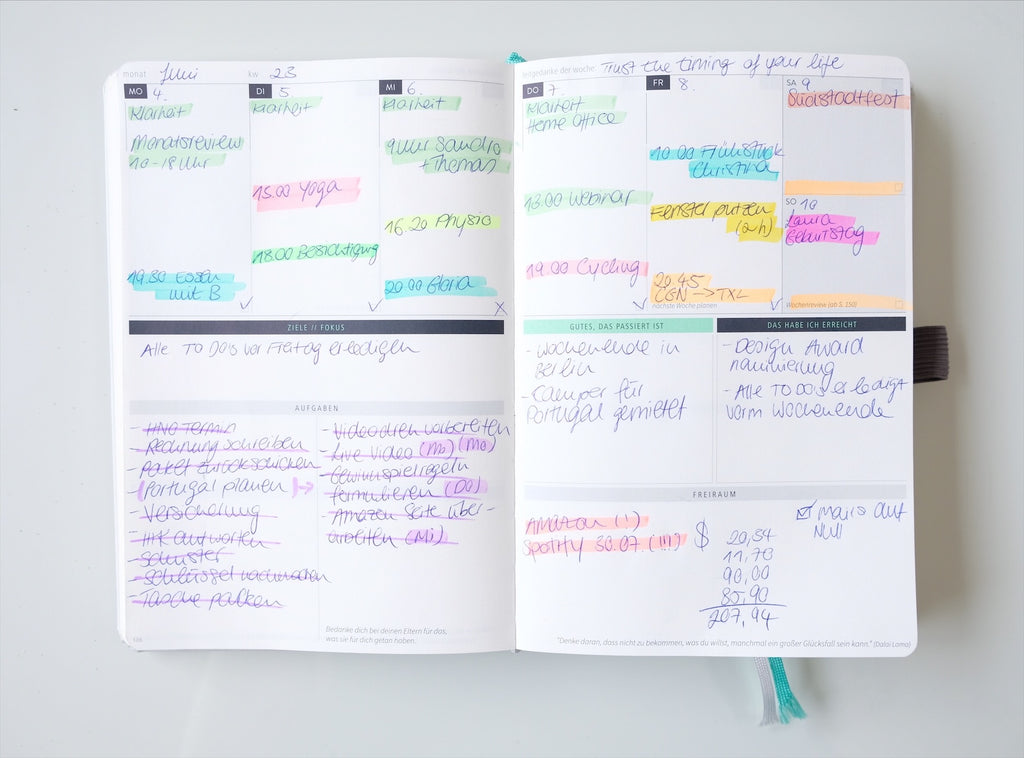 monat Juni kw 23
MO 4.
Klarheit
Monatsreview
10-18 Uhr
19.30 Essen
mit B
DI 5.
Klarheit
15.00 Yoga
18.00 Besichtigung
MI 6.
Klarheit
9 Uhr Sandra
+Thomas
16.20 Physio
20.00 Gloria
ZIELE // FOKUS
Alle TO DOs vor Freitag erledigen
AUFGABEN
- HNO Termin
- Rechnung schreiben
- Paket zurückschicken
- Portugal planen
- Versicherung
- IHK antworten
- Schuster
- Schlüssel nachmachen
- Tasche packen
- Videodreh vorbereiten
- Live Video (Mo) (Mo)
- Gewinnspielregeln
formulieren (DO)
- Amazon Seite über-
arbeiten (Mi)
Bedanke dich bei deinen Eltern für das,
was sie für dich getan haben.
leitgedanke der woche Trust the timing of your life
DO 7.
Klarheit
Home Office
13.00 Webinar
19.00 Cycling
FR 8.
10.00 Frühstück
Christina
Fenster putzen
(2h)
20.45
CGN → TXL
nächste Woche planen
SA 9
Südstadtfest
SO 10
Laura
Geburtstag
Wochenreview (ab S. 150)
GUTES, DAS PASSIERT IST
- Wochenende in
Berlin
- Camper für
Portugal gemietet
DAS HABE ICH ERREICHT
- Design Award
nominierung
- Alle TO DOs erledigt
vorm Wochenende
FREIRAUM
Amazon (!)
Spotify 30.07 (!!!)
$
20,34
11,70
90,00
85,90
207,94
mails auf
Null
"Denke daran, dass nicht zu bekommen, was du willst, manchmal ein großer Glücksfall sein kann." (Dalai Lama)